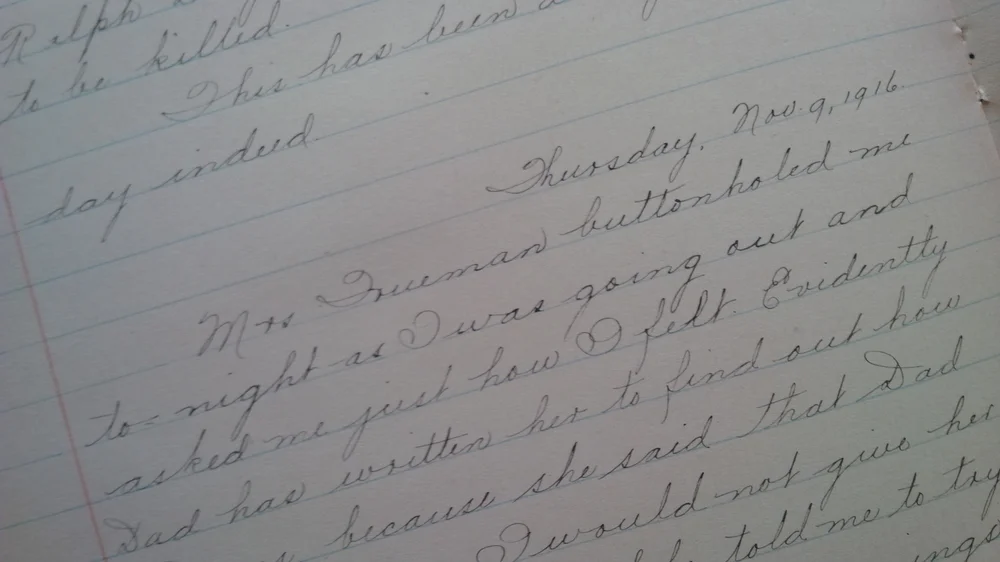 Ralph
to be killed.
This has been a
day indeed.
Thursday, Nov. 9, 1916.
Mrs Trueman buttonholed me
to-night as I was going out and
asked me just how I felt. Evidently
Dad has written her to find out how
because she said that Dad
I would not give her
told me to try